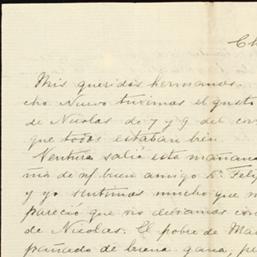 Ch
Mis queridos hermanos,
cho Nuevo tuvimos el gusto
de Nicolas de 7 y 9 del cor
que todos estaban bien.
Ventura salió esta mañana
ñia de mi buen amigo Dn Felip
y yo sentimos mucho que n
pareció que no debiamos con
de Nicolas. El pobre de Ma
pañado de buena gana, pe